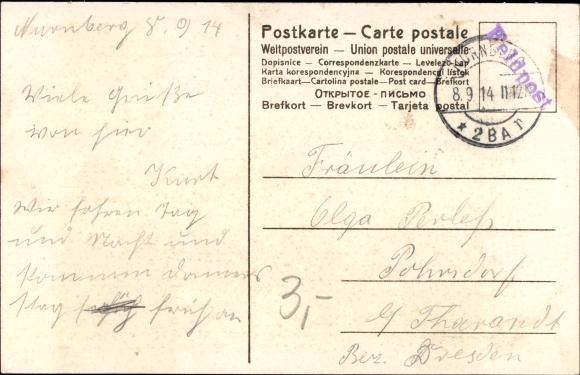 Nürnberg 8.9.14
Viele Grüße
von hier
Kurt
Wir fahren Tag
und Nacht und
kommen Donners
tag früh an
Postkarte — Carte postale
Weltpostverein — Union postale universelle
Dopisnice — Correspondenzkarte — Levelező-Lap
Karta korespondencyjna — Korespondenční lístek
Briefkaart — Cartolina postale — Post card — Brefkort
ОТКРЫТОЕ - ПИСЬМО
Brefkort — Brevkort — Tarjeta postal
Feldpost
8.9.14 11-12
* 2BAr
Fräulein
Olga
Pohrsdorf
b/ Tharandt
Bez. Dresden
3,-